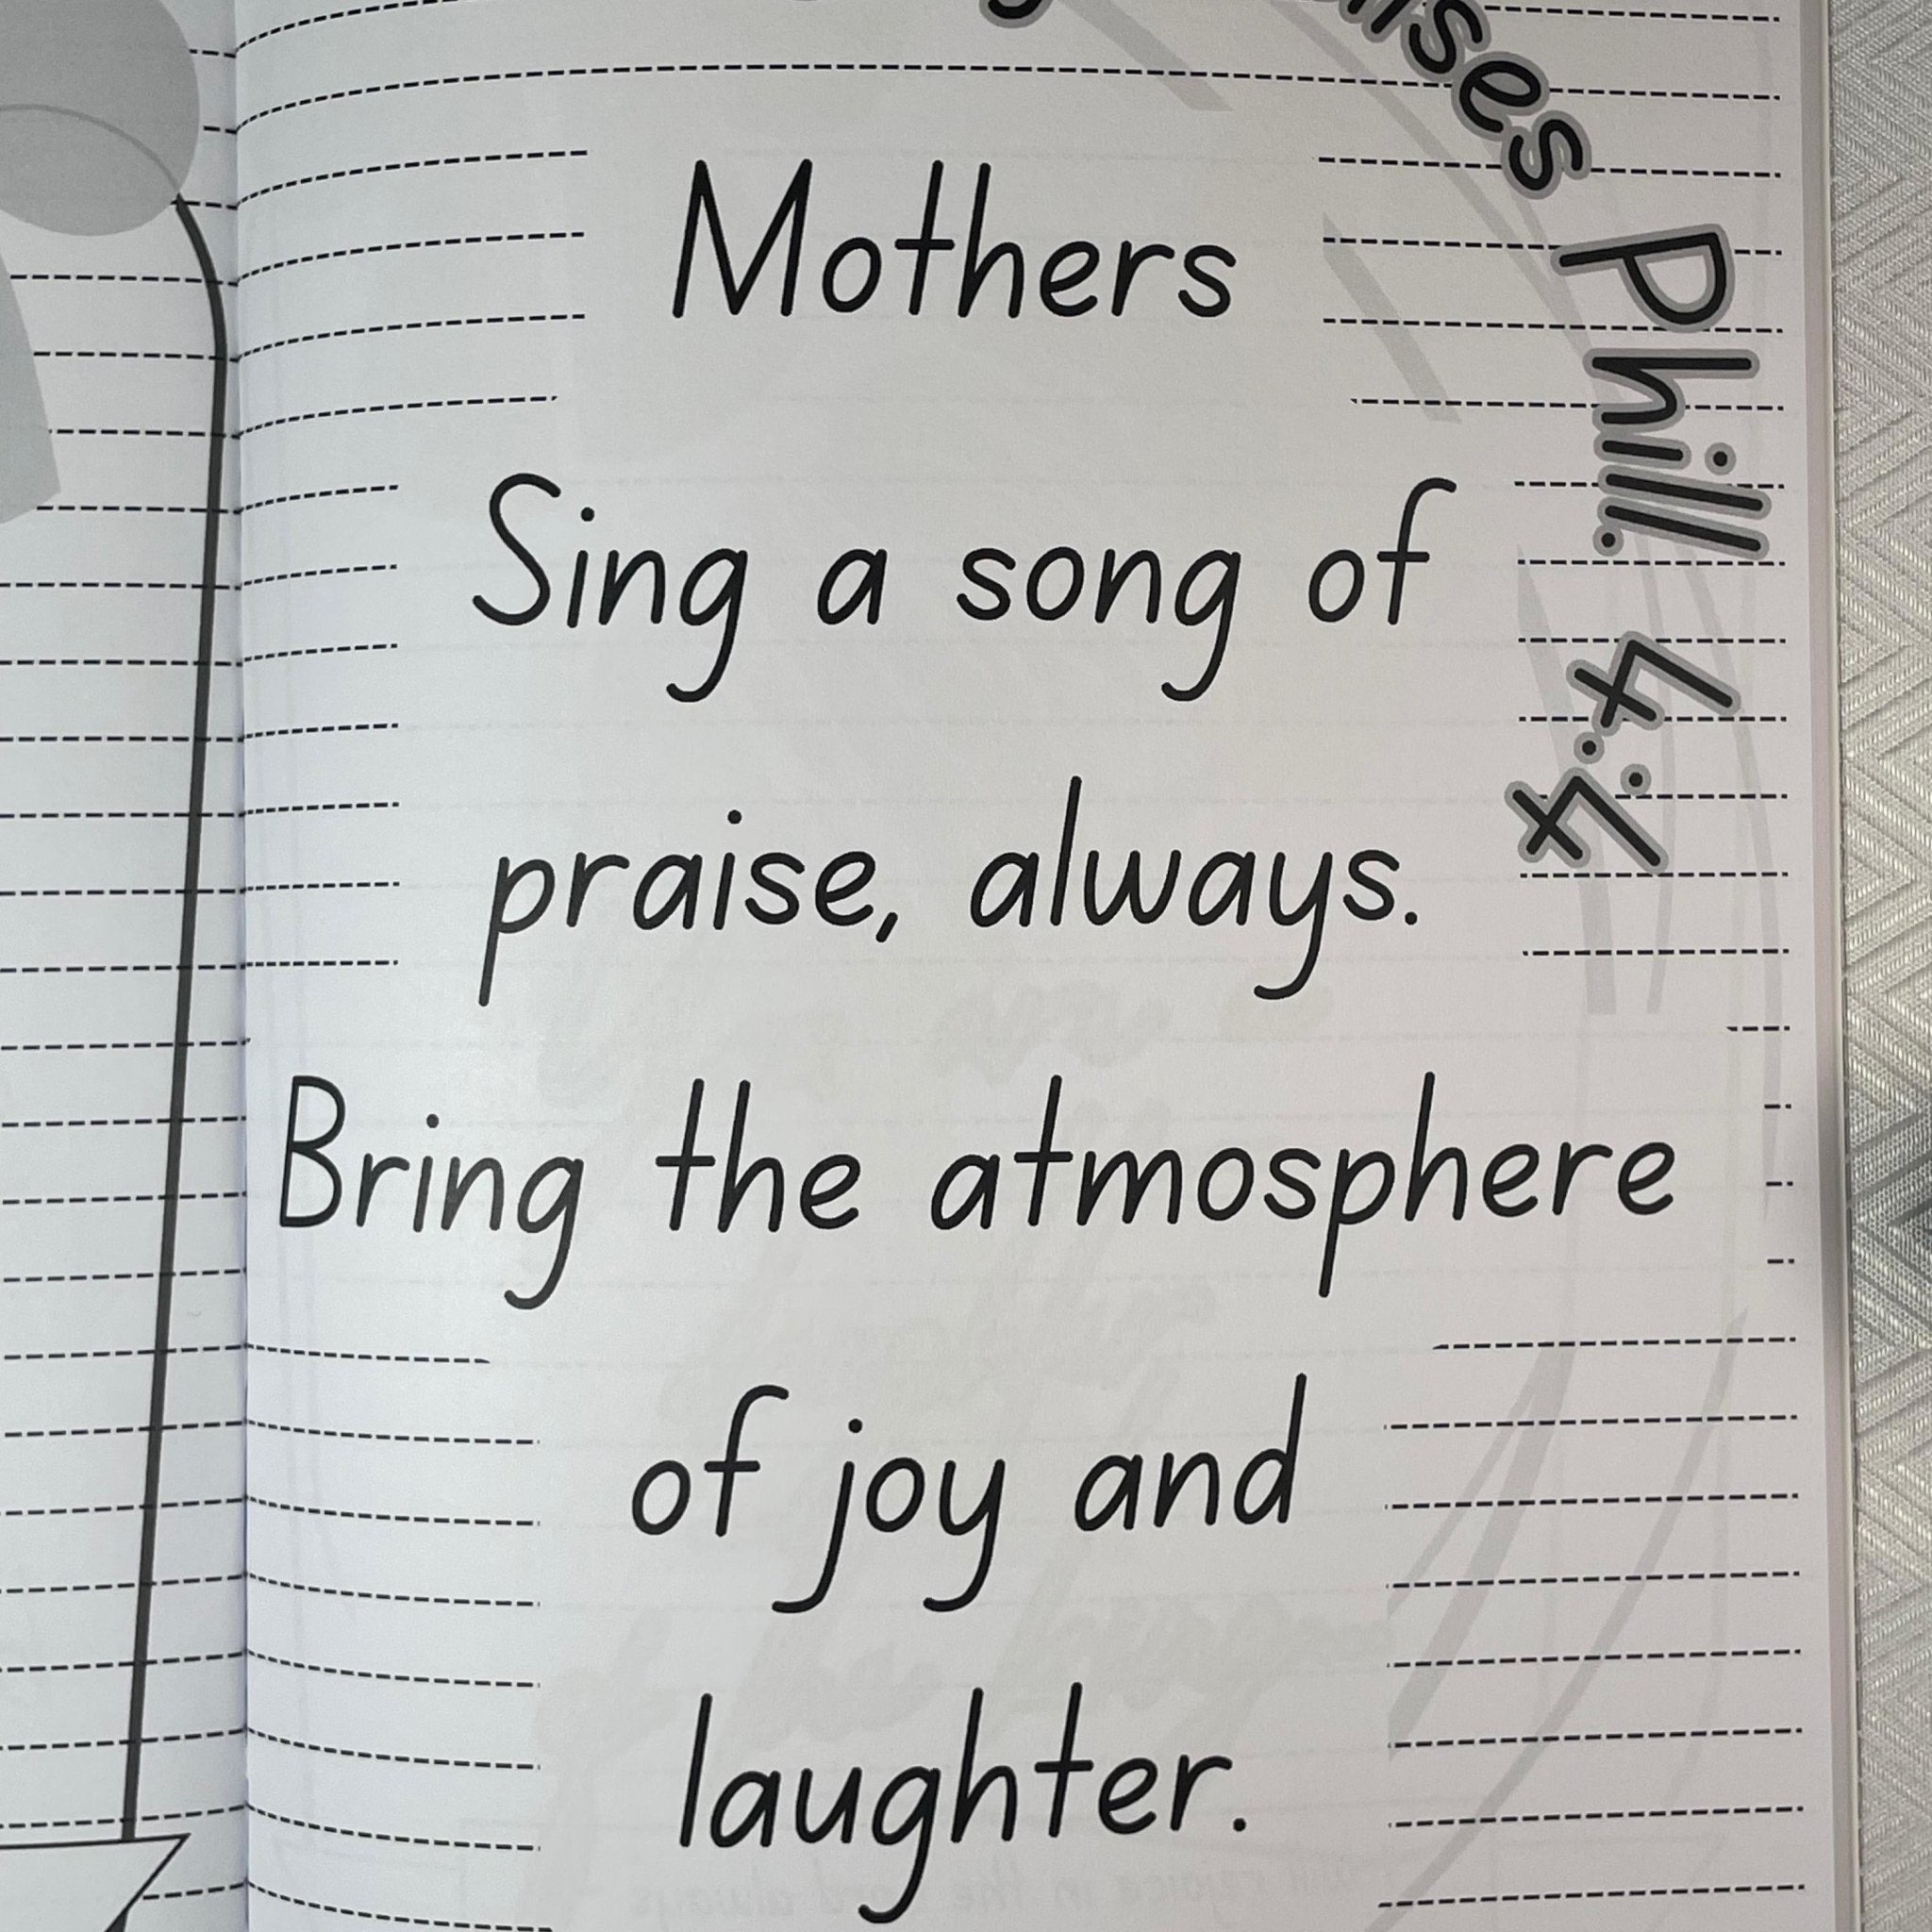 Mothers
Sing a song of
praise, always.
Bring the atmosphere
of joy and
laughter.
Phill. 4:4